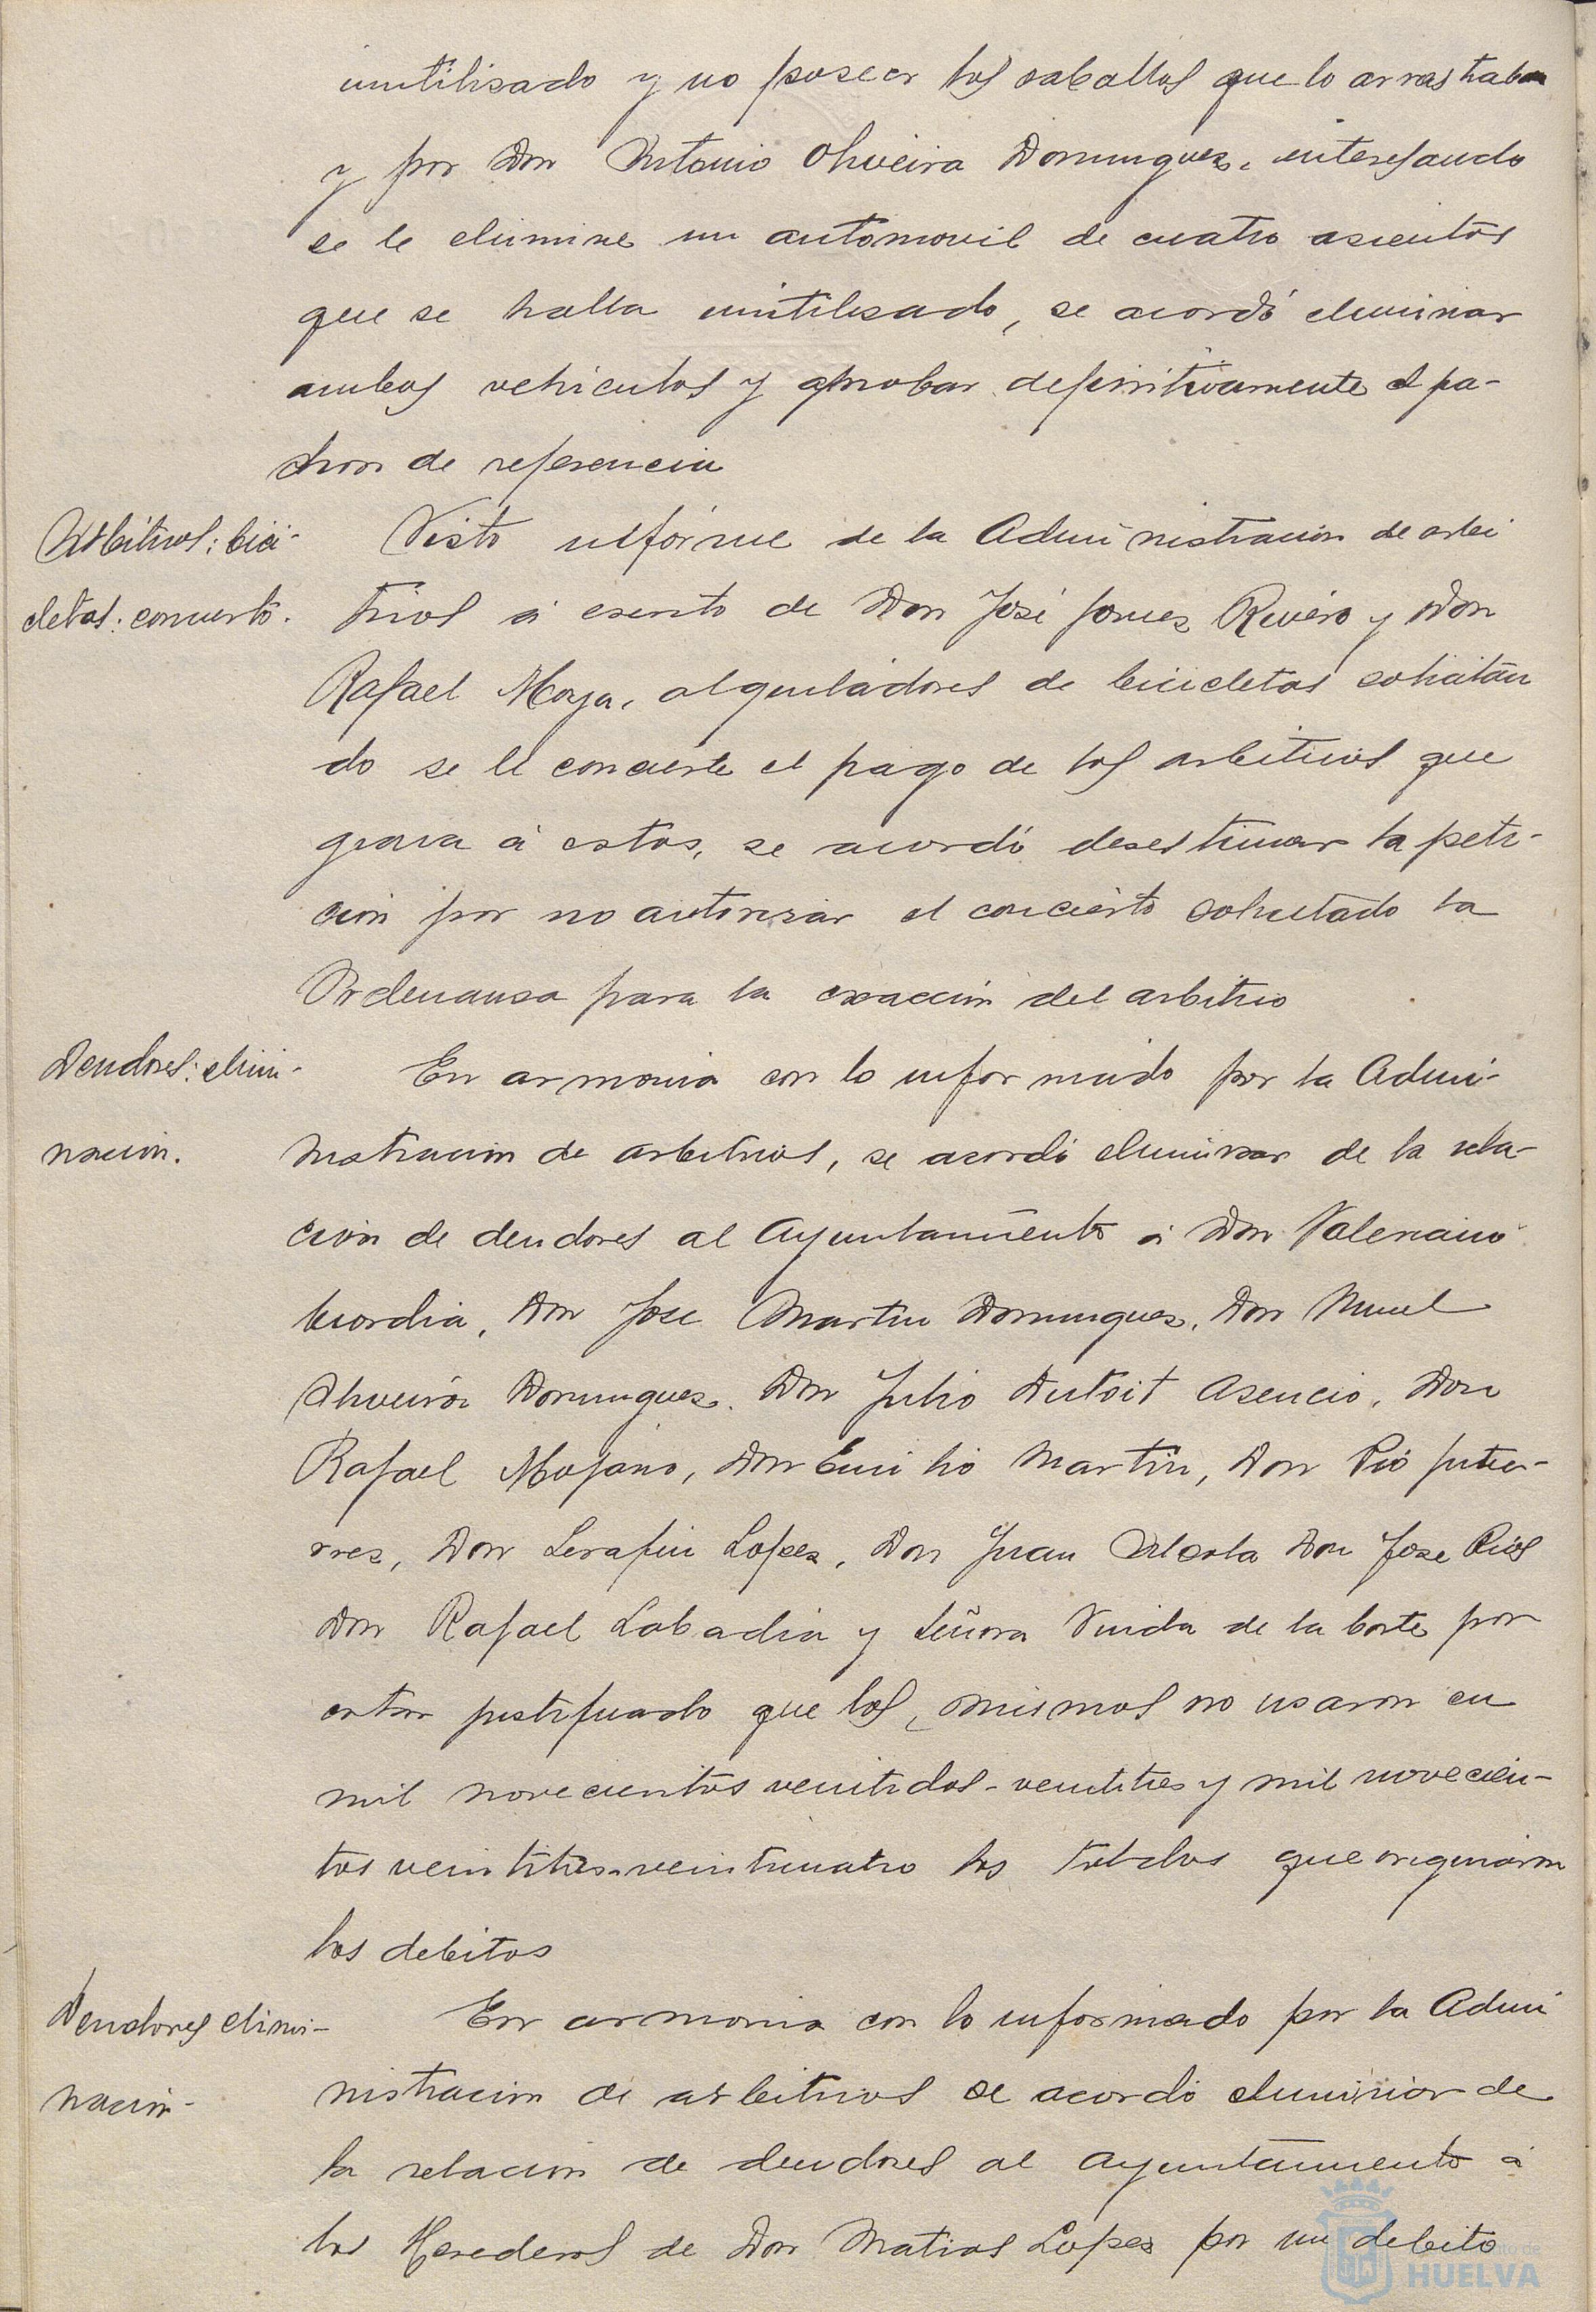 inutilisado y no poseer los caballos que lo arrastraban
y por Don Antonio Oliveira Dominguez, interesando
se le elimine un automovil de cuatro asientos
que se halla inutilisado, se acordó eliminar
ambos vehiculos y aprobar definitivamente el pa-
dron de referencia
Arbitrios: bici-
cletas: concierto.
Visto informe de la Administracion de arbi
trios á escrito de Don José Gomez Rivero y Don
Rafael Moya, alquiladores de bicicletas solicitan
do se le concierte el pago de los arbitrios que
grava á estos, se acordó desestimar la peti-
cion por no autorizar el concierto solicitado la
Ordenansa para la exacción del arbitrio
Deudores: elimi-
nacion.
En armonia con lo informado por la Admi-
nistracion de arbitrios, se acordó eliminar de la rela-
cion de deudores al Ayuntamiento á Don Valeriano
Don Jose Martin Dominguez, Don
Oliveira Dominguez. Don Julio Dutoit Asencio, Don
Rafael Mojano, Don Emilio Martin, Don Pio Gutie-
rrez, Don Serafin Lopez, Don Juan Don Jose Rios
Don Rafael Labadia y Señora Viuda de la Corte por
estar justificado que los mismos no usaron en
mil novecientos veintidos-veintitres y mil novecien-
tos veintitres-veinticuatro los toldos que originaron
los debitos
Deudores elimi-
nacion-
En armonia con lo informado por la Admi
nistracion de arbitrios se acordó eliminar de
la relacion de deudores al Ayuntamiento á
los Herederos de Don Matias Lopez por un debito
HUELVA